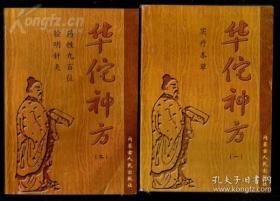 华佗神方
药性九百位
验明针灸
内蒙古人民出版社
华佗神方
(一)
实疗本草
内蒙古人民出版社
孔夫子旧书网